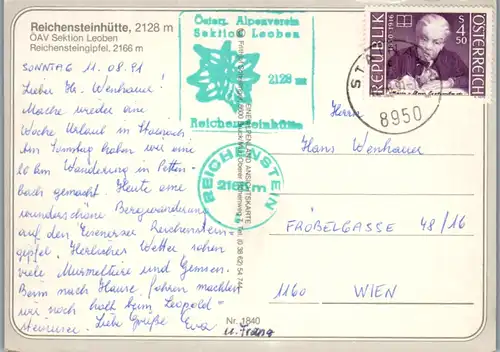 Reichensteinhütte, 2128 m
ÖAV Sektion Leoben
Reichensteingipfel, 2166 m
SONNTAG 11.08.91
Lieber Hr. Wenhauer!
Mache wieder eine
Woche Urlaub in Stainach
Am Samstag haben wir eine
20 km Wanderung in Petten-
bach gemacht. Heute eine
wunderschöne Bergwanderung
auf den Eisenerzer Reichenstein-
gipfel. Herrliches Wetter sahen
viele Murmeltiere und Gemsen.
Beim nach Hause fahren machten
wir noch halt beim "Leopold"
steinersee. Liebe Grüße Eva
u. Franz
Nr. 1840
Österr. Alpenverein
Sektion Leoben
2128 m
Reichensteinhütte
REICHENSTEIN
2165 m
REPUBLIK
ÖSTERREICH
S 4.50
ST
8950
Herrn
Hans Wenhauer
FRÖBELGASSE 48/16
1160 WIEN